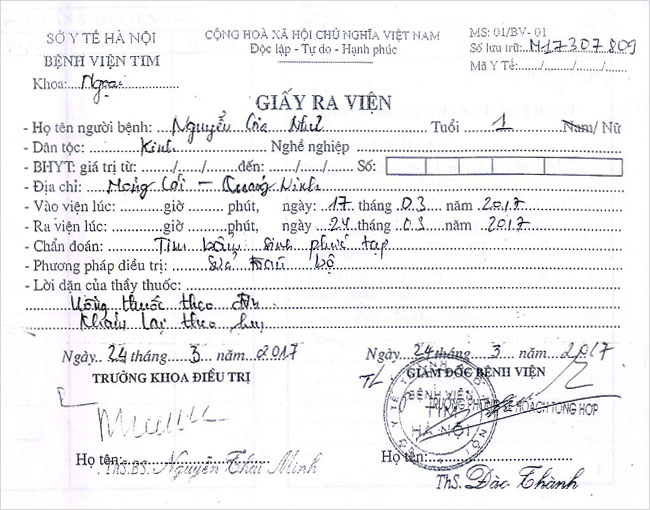 SỞ Y TẾ HÀ NỘI
BỆNH VIỆN TIM
Khoa: Ngoại
CỘNG HOÀ XÃ HỘI CHỦ NGHĨA VIỆT NAM
Độc lập - Tự do - Hạnh phúc
MS: 01/BV- 01
Số lưu trữ: M17307809
Mã Y Tế:....../....../......
GIẤY RA VIỆN
- Họ tên người bệnh: Nguyễn Gia Như Tuổi 1 Nam/ Nữ
- Dân tộc: Kinh Nghề nghiệp
- BHYT: giá trị từ:....../....../...... đến:....../....../...... Số:
- Địa chỉ: Móng Cái - Quảng Ninh
- Vào viện lúc: giờ phút, ngày: 17 tháng 03 năm 2017
- Ra viện lúc: giờ phút, ngày: 24 tháng 03 năm 2017
- Chẩn đoán: Tim bẩm sinh phức tạp
- Phương pháp điều trị: Sửa toàn bộ
- Lời dặn của thầy thuốc:
Uống thuốc theo đơn
Khám lại theo hẹn
Ngày 24 tháng 3 năm 2017
TRƯỞNG KHOA ĐIỀU TRỊ
Họ tên:
ThS.BS. Nguyễn Thái Minh
Ngày 24 tháng 3 năm 2017
TL GIÁM ĐỐC BỆNH VIỆN
TRƯỞNG PHÒNG KẾ HOẠCH TỔNG HỢP
SỞ Y TẾ THÀNH PHỐ HÀ NỘI
BỆNH VIỆN
TIM
HÀ NỘI
Họ tên:
ThS. Đào Thành